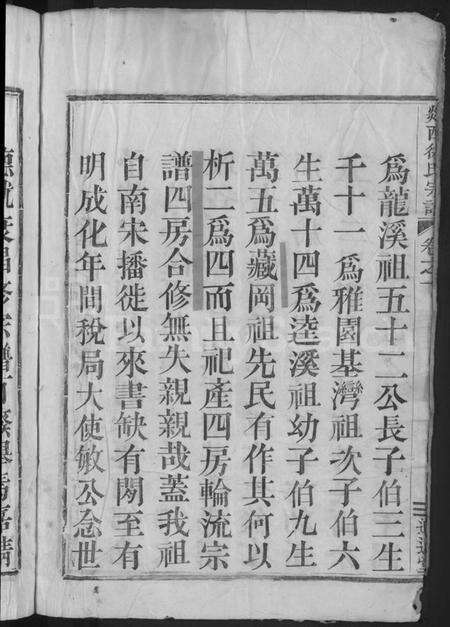 爲龍溪祖五十二公長子伯三生
千十一爲雅園基灣祖次子伯六
生萬十四爲逵溪祖幼子伯九生
萬五爲藏岡祖先民有作其何以
析二爲四而且祀產四房輪流宗
譜四房合修無失親親哉蓋我祖
自南宋播徙以來書缺有閎至有
明成化年間稅局大使敏公念世